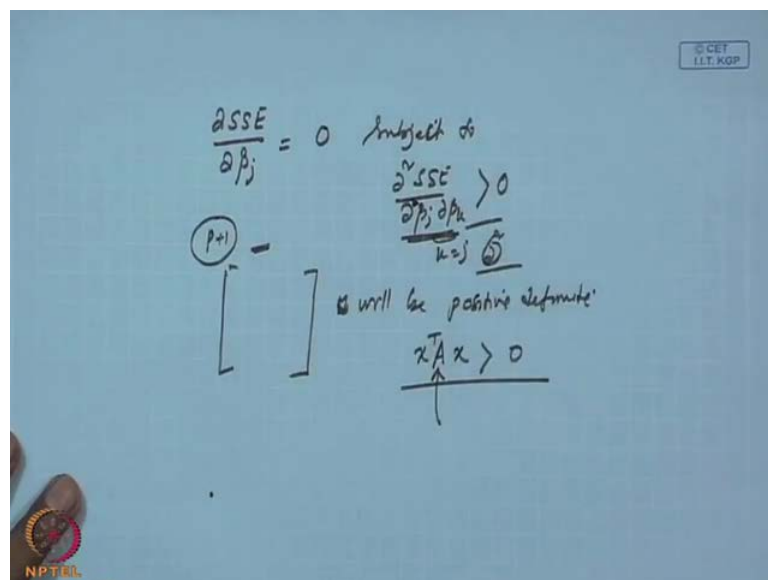 © CET
I.I.T. KGP
∂SSE / ∂βj = 0 subject to
∂²SSE / ∂βj ∂βk > 0
k=j
p+1 –
[ ] will be positive definite.
xᵀAx > 0
NPTEL